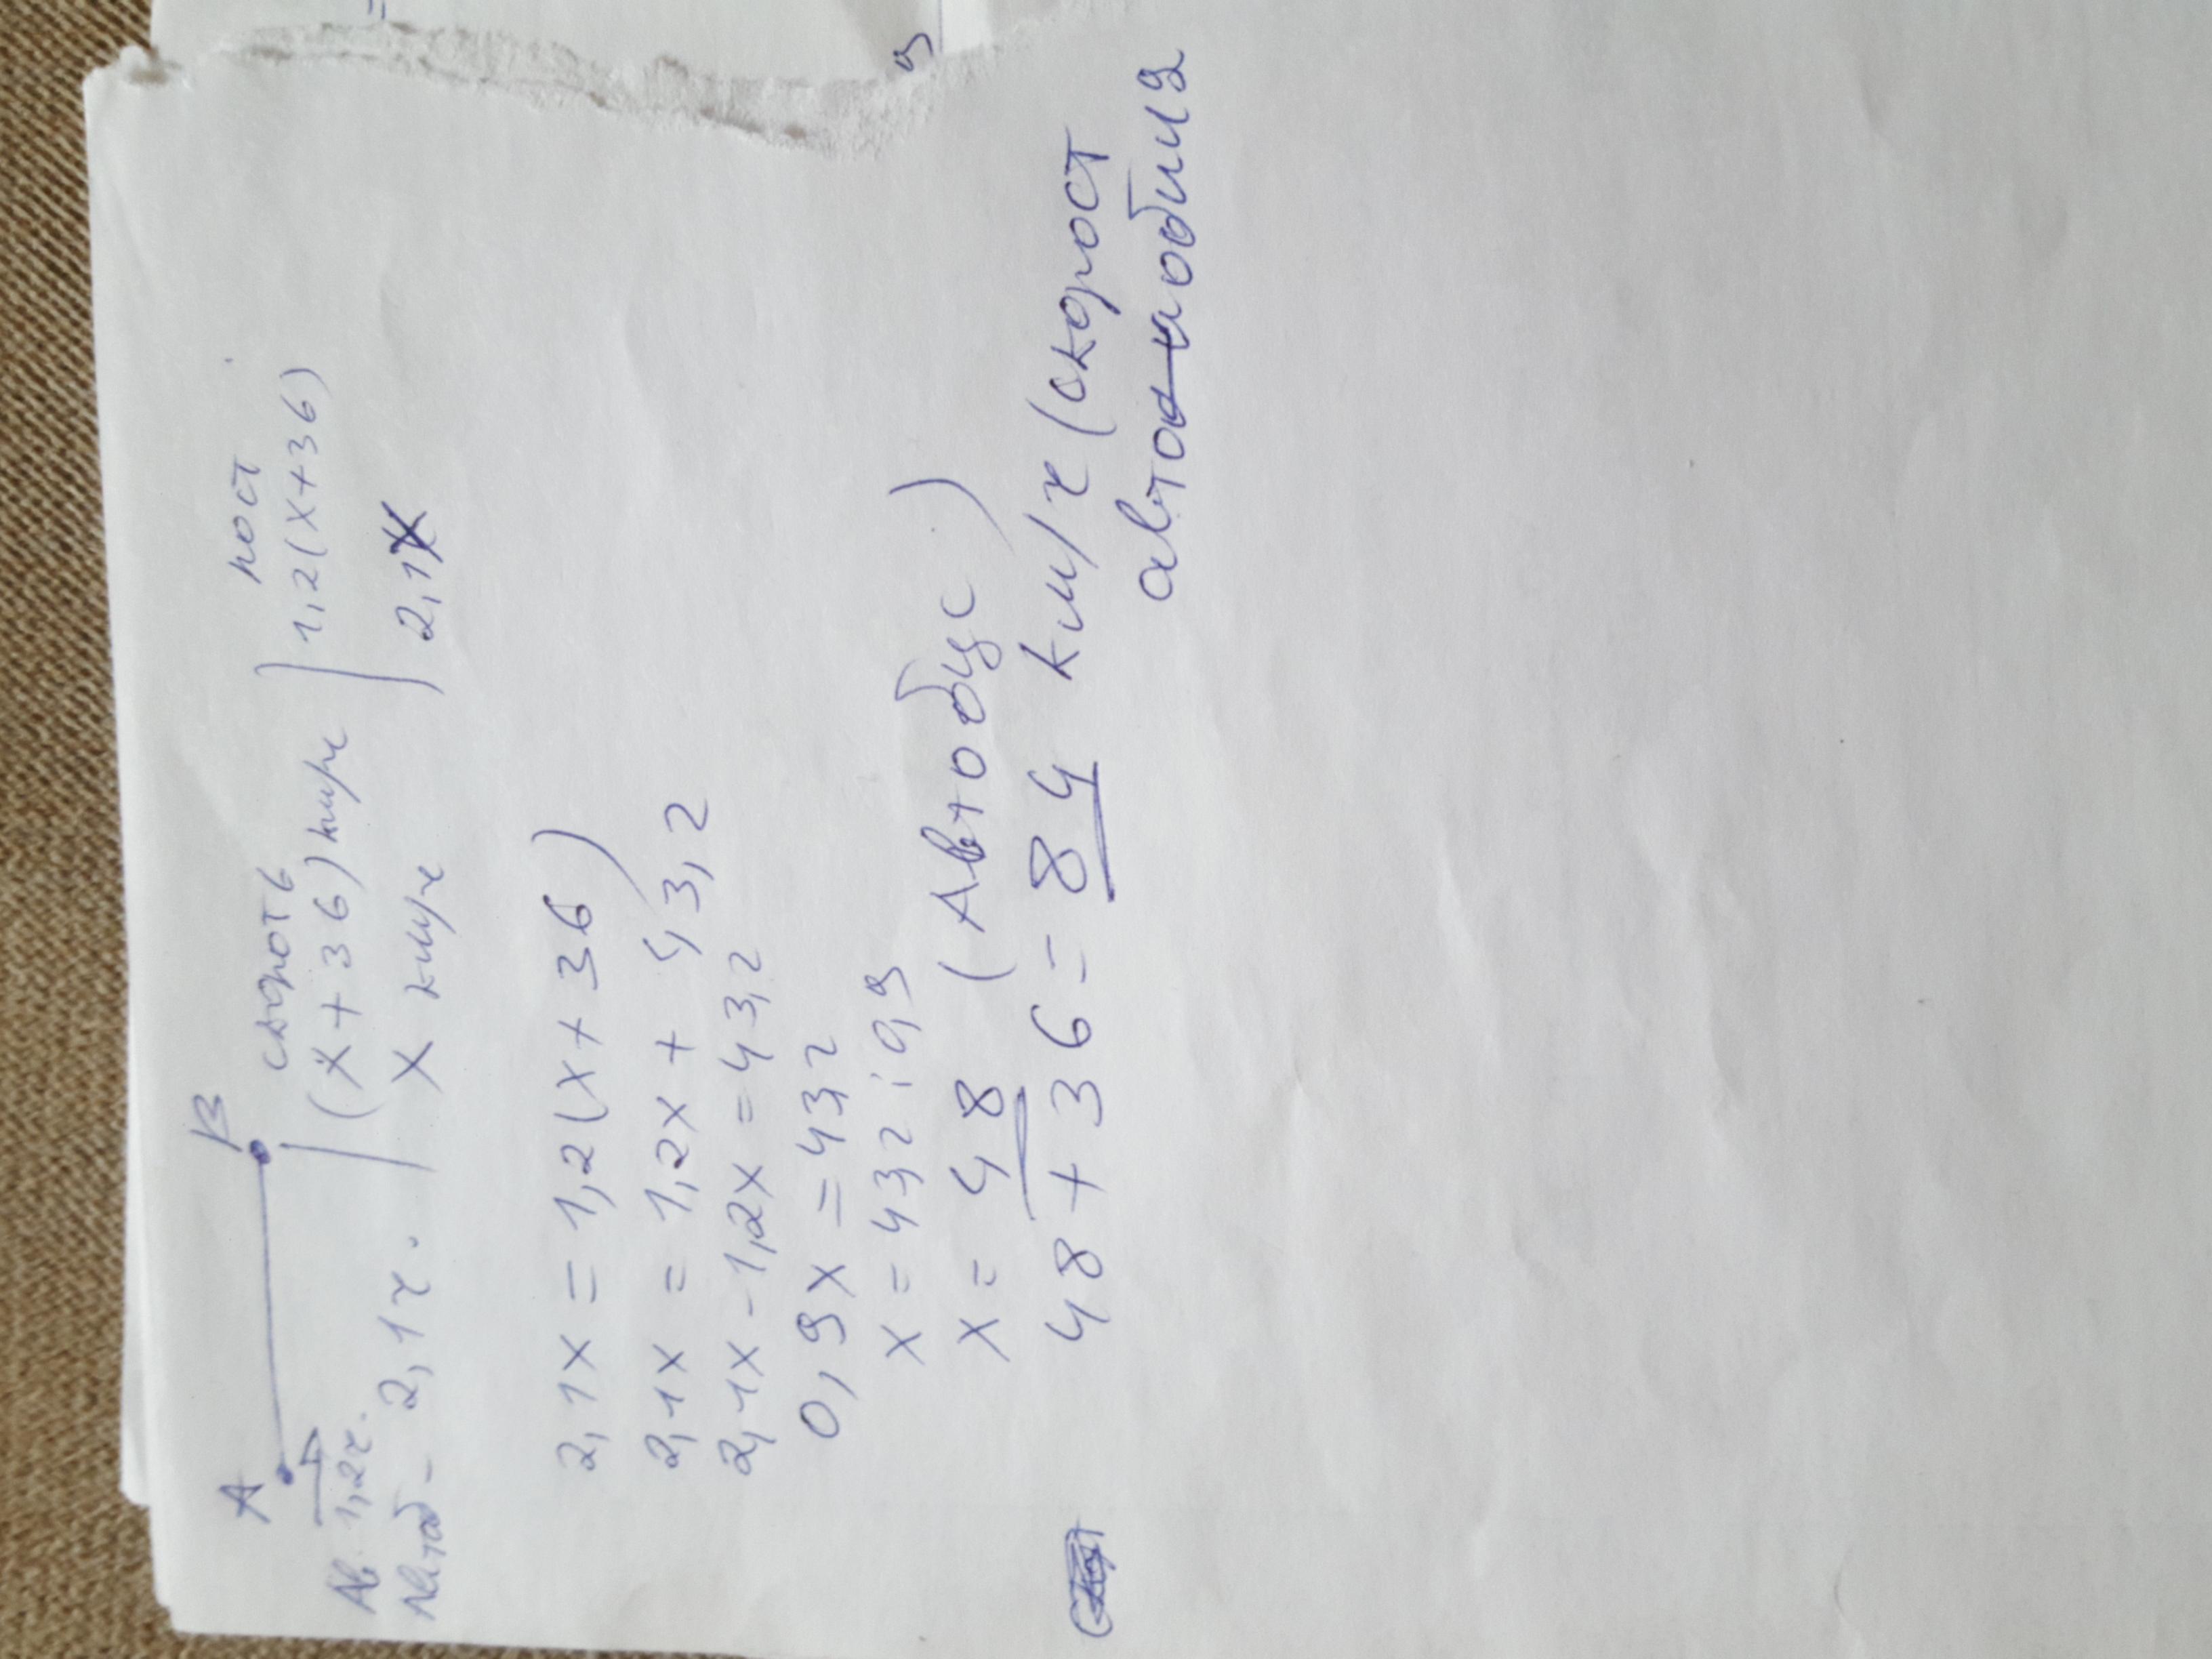 A B
скорость рост
Ав. 1,2ч. (x+36)км/ч 1,2(x+36)
Автоб - 2,1ч. x км/ч 2,1x
2,1x = 1,2(x+36)
2,1x = 1,2x + 43,2
2,1x - 1,2x = 43,2
0,9x = 43,2
x = 43,2 : 0,9
x = 48 (Автобус)
48 + 36 = 84 км/ч (скорост
автомобиля
9
=